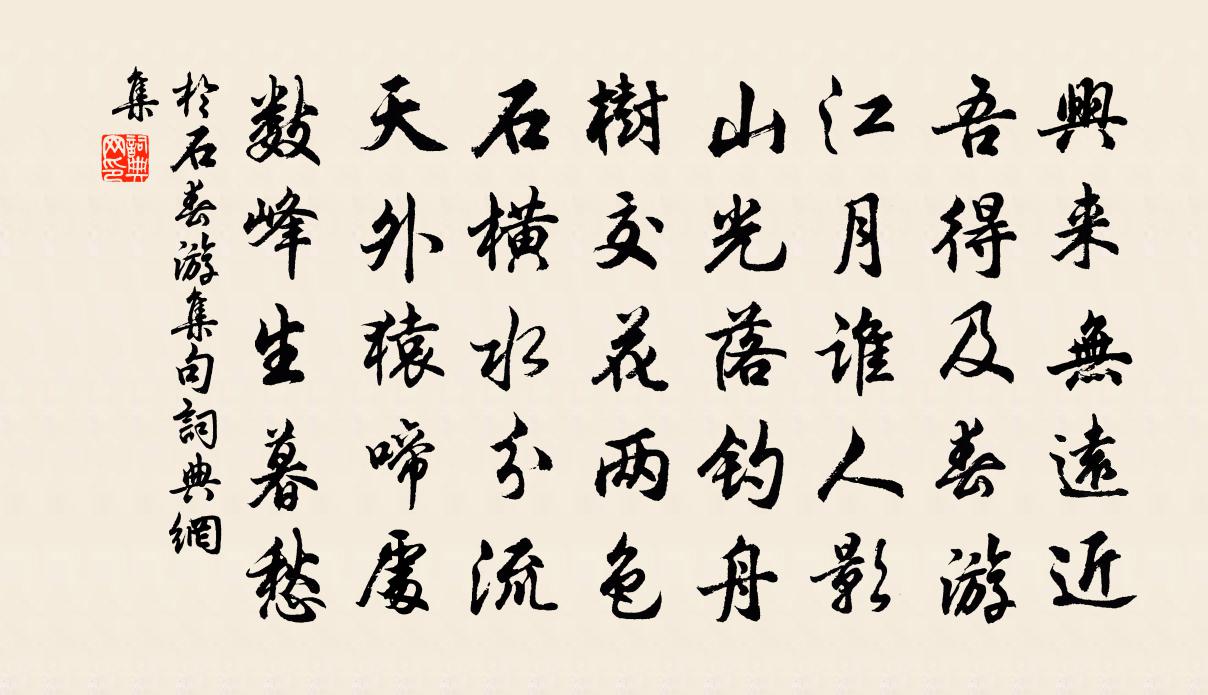 興来無遠近
吾得及春游
江月誰人影
山光落釣舟
樹交花两色
石横水分流
天外猿啼處
數峰生暮愁
於石春游集句詞典網
集
詞典网印